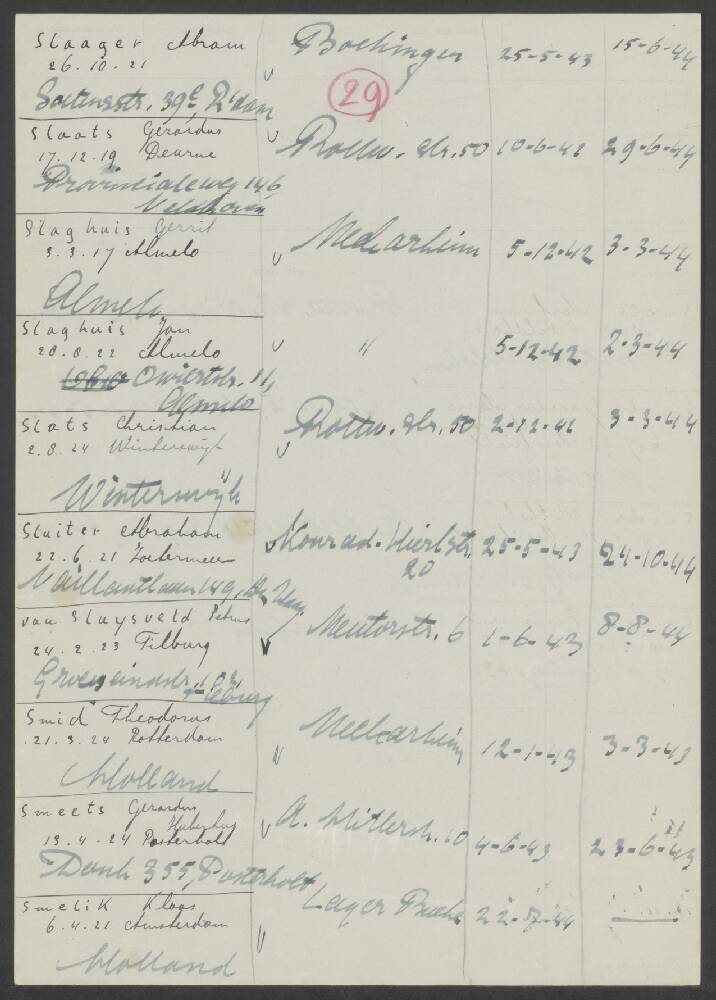 Slaager Abram Boehinger 25-5-43 15-6-44
26.10.21
Soetensstr. 39c, R'dam 29
Slaats Gerardus Rottw. Str. 50 10-6-42 29-6-44
17.12.19 Deurne
Provincialeweg 146
Veldhoven
Slaghuis Gerrit Neckarheim 5-12-42 3-3-44
3.3.17 Almelo
Almelo
Slaghuis Jan " 5-12-42 2-3-44
28.8.22 Almelo
11,
Almelo
Slats Christian Rottw. Str. 50 2-12-42 3-3-44
2.8.24 Winterswijk
Winterswijk
Sluiter Abraham Konrad-Hierlstr. 25-5-43 24-10-44
22.6.21 Zoetermeer 20
Vaillantlaan 149, den Haag
van Sluysveld Petrus Mentorstr. 6 1-6-43 8-8-44
24.2.23 Tilburg
Tilburg
Smid Theodorus Neckarheim 12-1-43 3-3-43
21.3.24 Rotterdam
Holland
Smeets Gerardus
Hubertus A. Hitlerstr. 10 4-6-43 23-6-43
13.4.24 Posterholt
Donk 355, Posterholt
Smelik Klaas Lager 22-5-44
6.4.21 Amsterdam
Holland